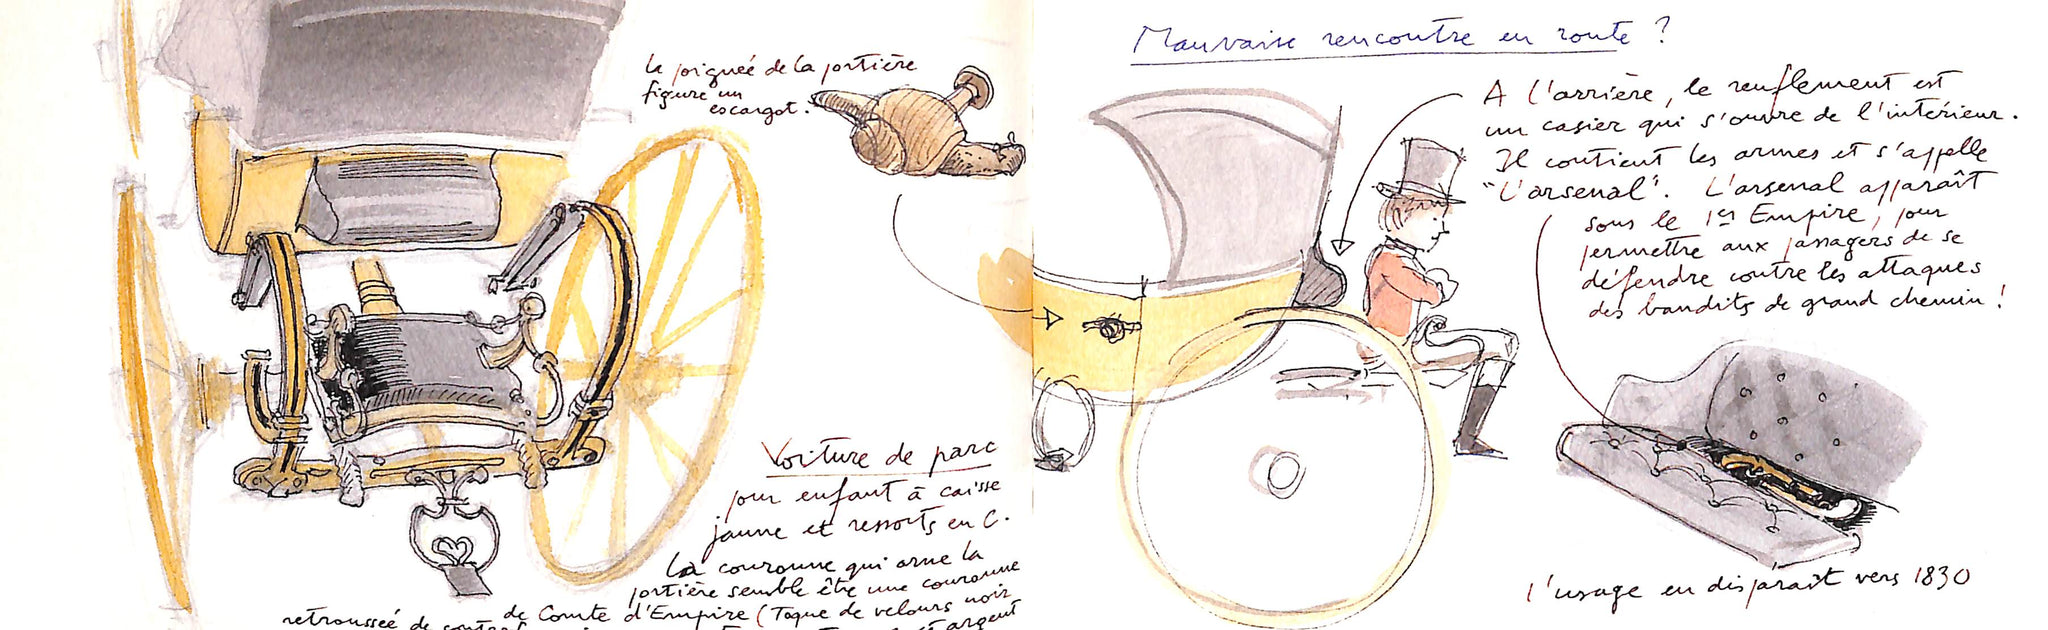 la poignée de la portière
figure un
escargot.
Voiture de parc
pour enfant à caisse
jaune et ressorts en C.
La couronne qui orne la
portière semble être une couronne
de Comte d'Empire (Toque de velours noir
retroussée de
argent
Mauvaise rencontre en route ?
A l'arrière, le renflement est
un casier qui s'ouvre de l'intérieur.
Il contient les armes et s'appelle
"L'arsenal". L'arsenal apparaît
sous le 1er Empire, pour
permettre aux passagers de se
défendre contre les attaques
des bandits de grand chemin !
l'usage en disparaît vers 1830